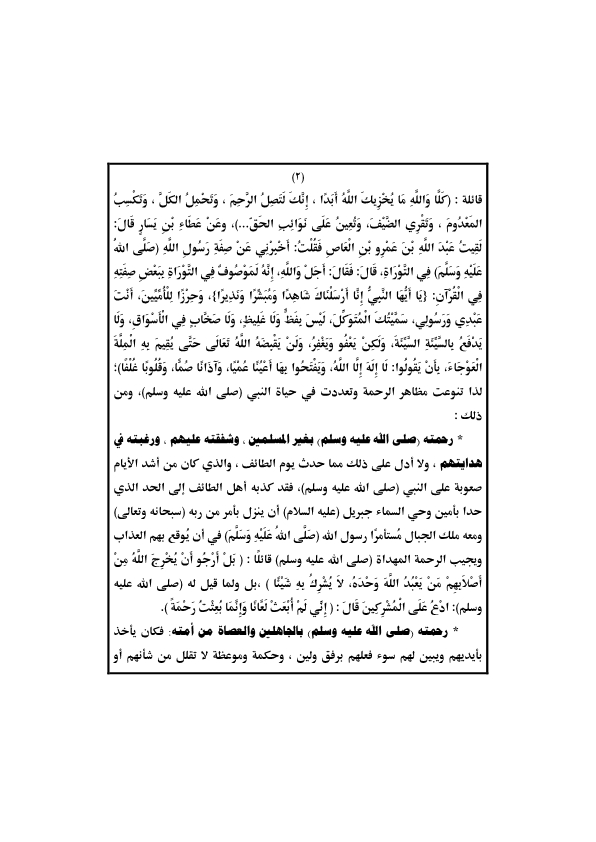 (٢)
قائلة : (كَلَّا وَاللَّهِ مَا يُخْزِيكَ اللَّهُ أَبَدًا ، إِنَّكَ لَتَصِلُ الرَّحِمَ ، وَتَحْمِلُ الكَلَّ ، وَتَكْسِبُ
المَعْدُومَ ، وَتَقْرِي الضَّيْفَ، وَتُعِينُ عَلَى نَوَائِبِ الحَقّ...)، وعَنْ عَطَاءِ بْنِ يَسَارٍ قَالَ:
لَقِيتُ عَبْدَ اللَّهِ بْنَ عَمْرِو بْنِ الْعَاصِ فَقُلْتُ: أَخْبِرْنِي عَنْ صِفَةِ رَسُولِ اللَّهِ (صَلَّى اللهُ
عَلَيْهِ وَسَلَّمَ) فِي التَّوْرَاةِ، قَالَ: فَقَالَ: أَجَلْ وَاللَّهِ، إِنَّهُ لَمَوْصُوفٌ فِي التَّوْرَاةِ بِبَعْضِ صِفَتِهِ
فِي الْقُرْآنِ: {يَا أَيُّهَا النَّبِيُّ إِنَّا أَرْسَلْنَاكَ شَاهِدًا وَمُبَشِّرًا وَنَذِيرًا}، وَحِرْزًا لِلْأُمِّيِّينَ، أَنْتَ
عَبْدِي وَرَسُولِي، سَمَّيْتُكَ الْمُتَوَكِّلَ، لَيْسَ بِفَظٍّ وَلَا غَلِيظٍ، وَلَا صَخَّابٍ فِي الْأَسْوَاقِ، وَلَا
يَدْفَعُ بِالسَّيِّئَةِ السَّيِّئَةَ، وَلَكِنْ يَعْفُو وَيَغْفِرُ، وَلَنْ يَقْبِضَهُ اللَّهُ تَعَالَى حَتَّى يُقِيمَ بِهِ الْمِلَّةَ
الْعَوْجَاءَ، بِأَنْ يَقُولُوا: لَا إِلَهَ إِلَّا اللَّهُ، وَيَفْتَحُوا بِهَا أَعْيُنًا عُمْيًا، وَآذَانًا صُمًّا، وَقُلُوبًا غُلْفًا)؛
لذا تنوعت مظاهر الرحمة وتعددت في حياة النبي (صلى الله عليه وسلم)، ومن
ذلك :
* رحمته (صلى الله عليه وسلم) بغير المسلمين ، وشفقته عليهم ، ورغبته في
هدايتهم ، ولا أدل على ذلك مما حدث يوم الطائف ، والذي كان من أشد الأيام
صعوبة على النبي (صلى الله عليه وسلم)، فقد كذبه أهل الطائف إلى الحد الذي
حدا بأمين وحي السماء جبريل (عليه السلام) أن ينزل بأمر من ربه (سبحانه وتعالى)
ومعه ملك الجبال مُستأمرًا رسول الله (صَلَّى اللهُ عَلَيْهِ وَسَلَّمَ) في أن يُوقع بهم العذاب
ويجيب الرحمة المهداة (صلى الله عليه وسلم) قائلًا : ( بَلْ أَرْجُو أَنْ يُخْرِجَ اللَّهُ مِنْ
أَصْلَابِهِمْ مَنْ يَعْبُدُ اللَّهَ وَحْدَهُ، لاَ يُشْرِكُ بِهِ شَيْئًا ) ،بل ولما قيل له (صلى الله عليه
وسلم): ادْعُ عَلَى الْمُشْرِكِينَ قَالَ : ( إِنِّي لَمْ أُبْعَثْ لَعَّانًا وَإِنَّمَا بُعِثْتُ رَحْمَةً ).
* رحمته (صلى الله عليه وسلم) بالجاهلين والعصاة من أمته: فكان يأخذ
بأيديهم ويبين لهم سوء فعلهم برفق ولين ، وحكمة وموعظة لا تقلل من شأنهم أو